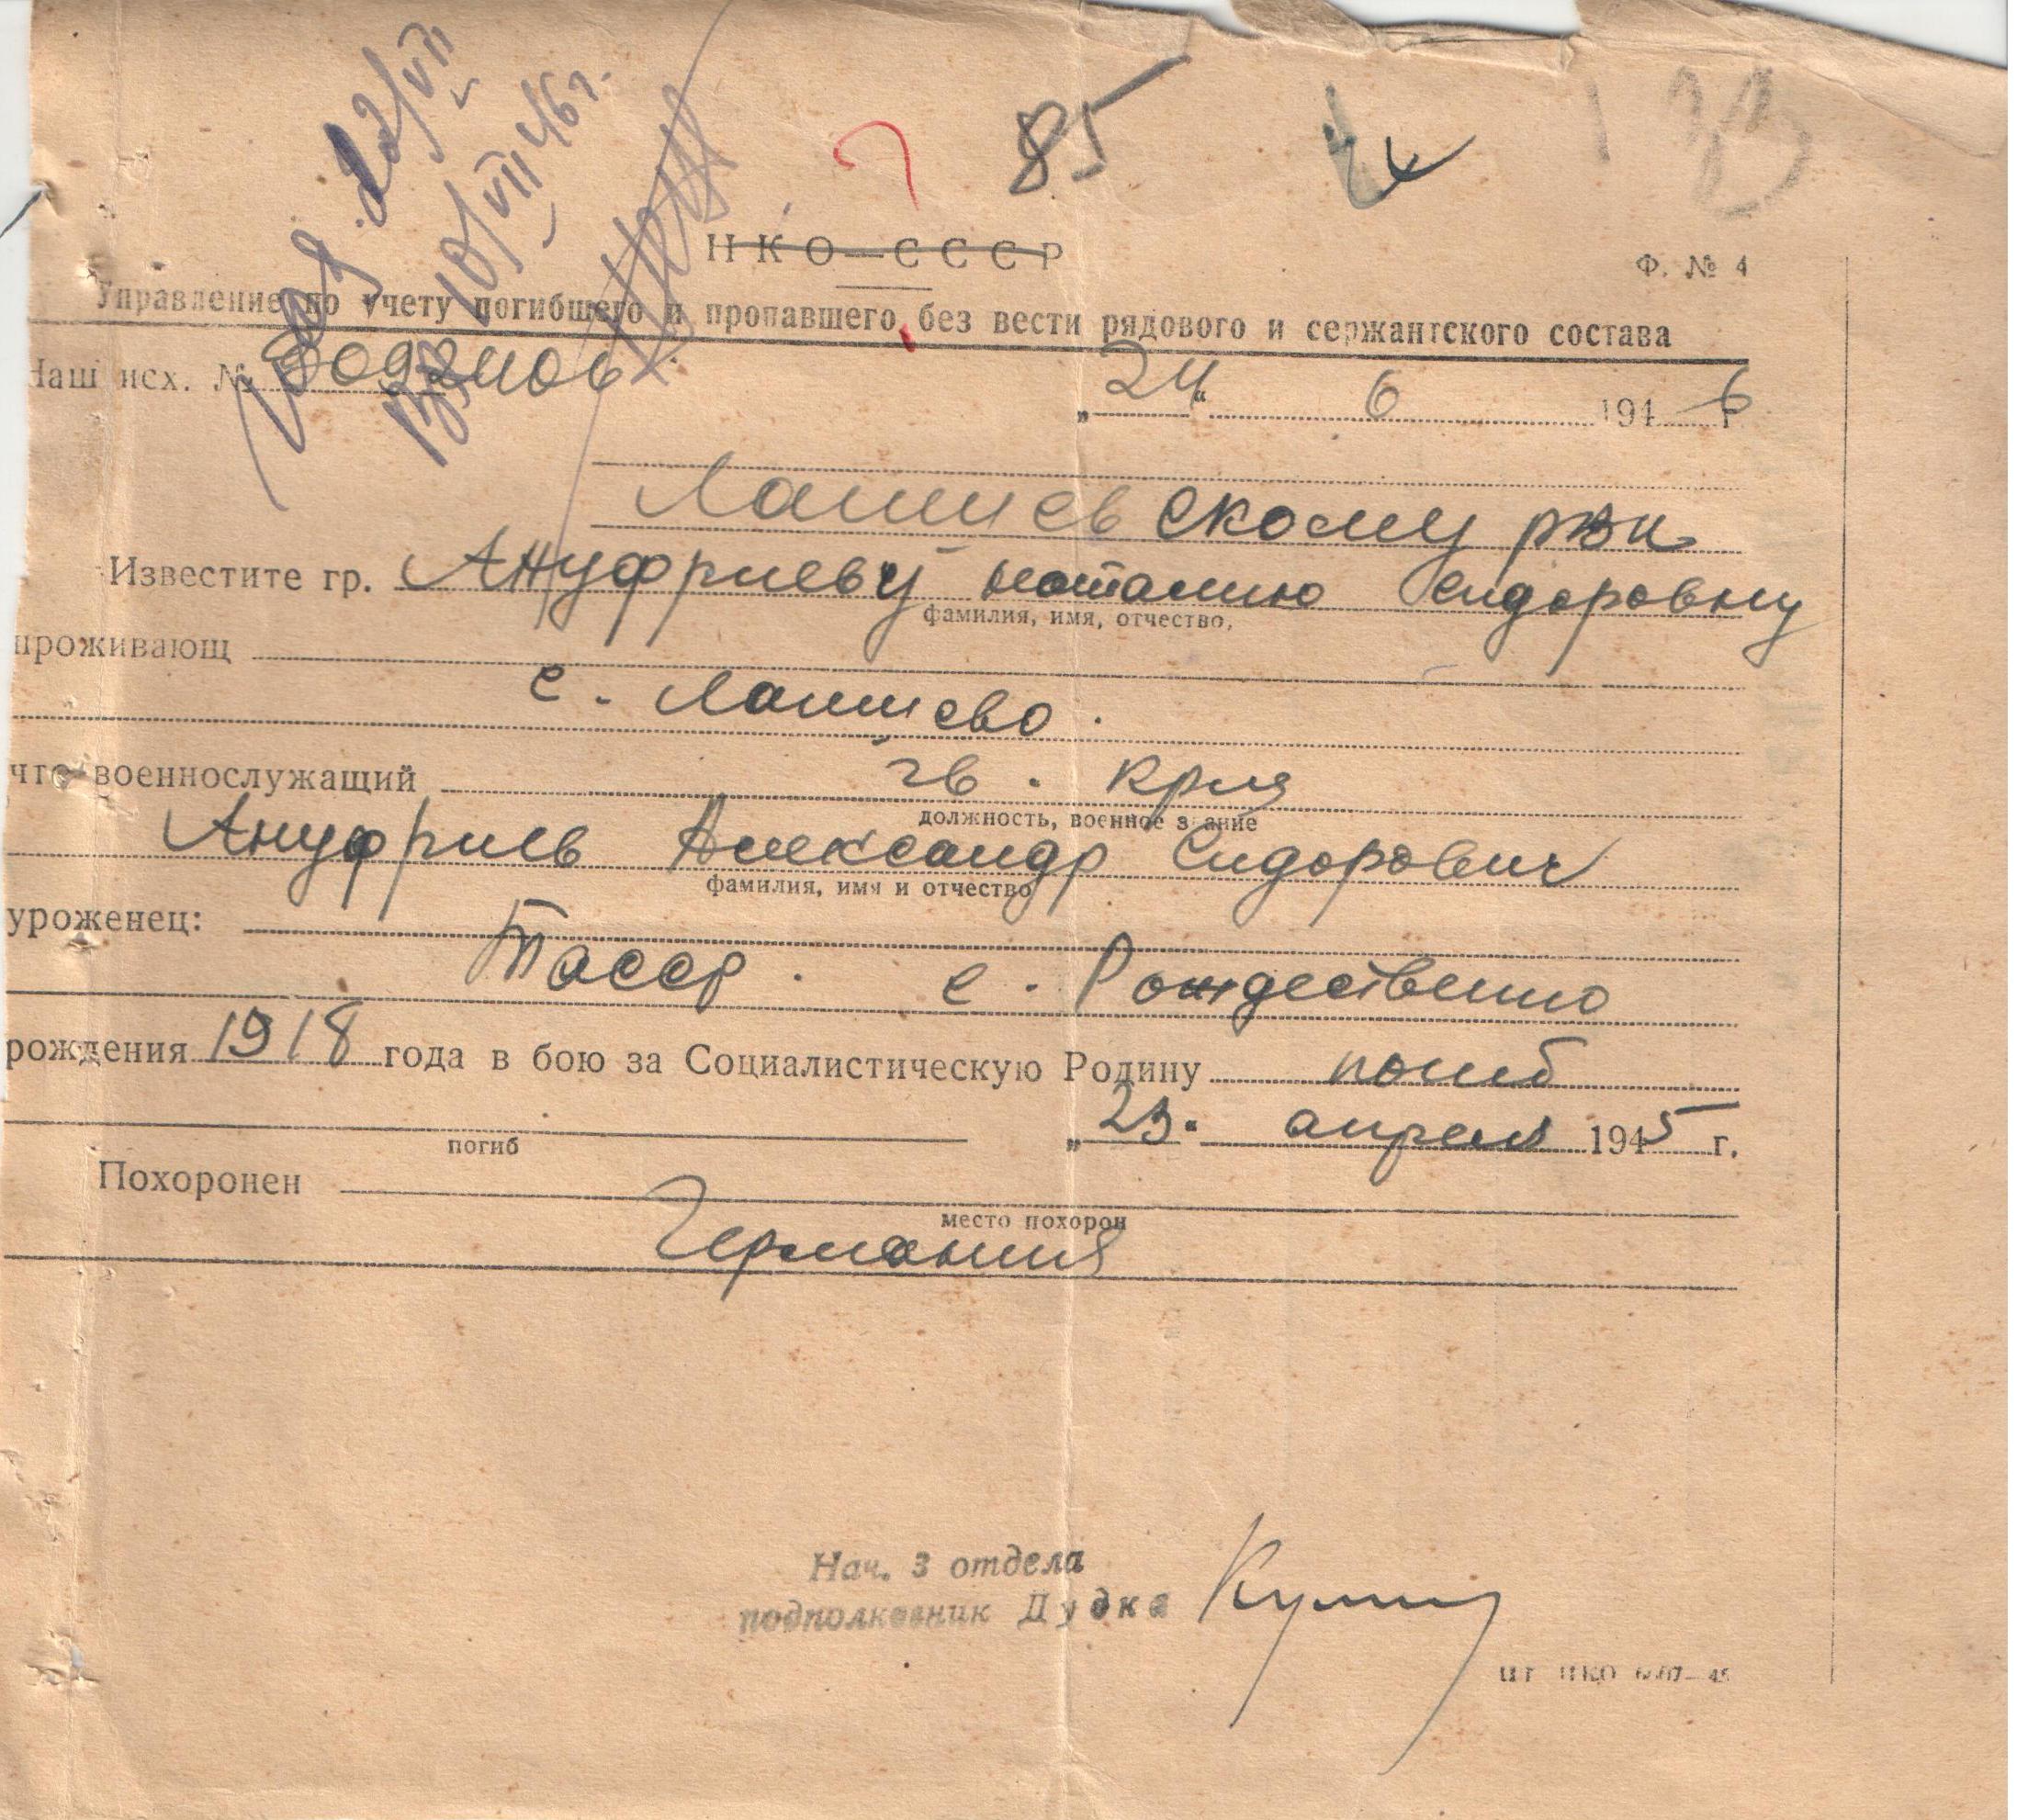 85
22/VII
10/VII 46 г.
НКО—СССР
Ф. № 4
Управление по учету погибшего и пропавшего без вести рядового и сержантского состава
Наш исх. №
„24“ 6 1946 г
Лаишевскому рвк
Известите гр. Ануфриеву Наталию Сидоровну
фамилия, имя, отчество,
проживающ
с. Лаишево.
что военнослужащий гв. кр-ц
должность, военное звание
Ануфриев Александр Сидорович
фамилия, имя и отчество
уроженец:
Тасср. с. Рождествено
рождения 1918 года в бою за Социалистическую Родину погиб
„23. апреля 1945 г.
погиб
Похоронен
место похорон
Германия
Нач. 3 отдела
подполковник Дудка